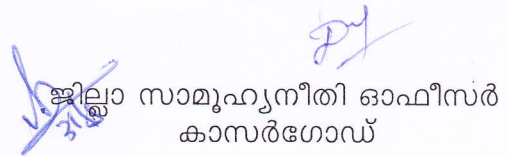 ജില്ലാ സാമൂഹ്യനീതി ഓഫീസർ
കാസർഗോഡ്